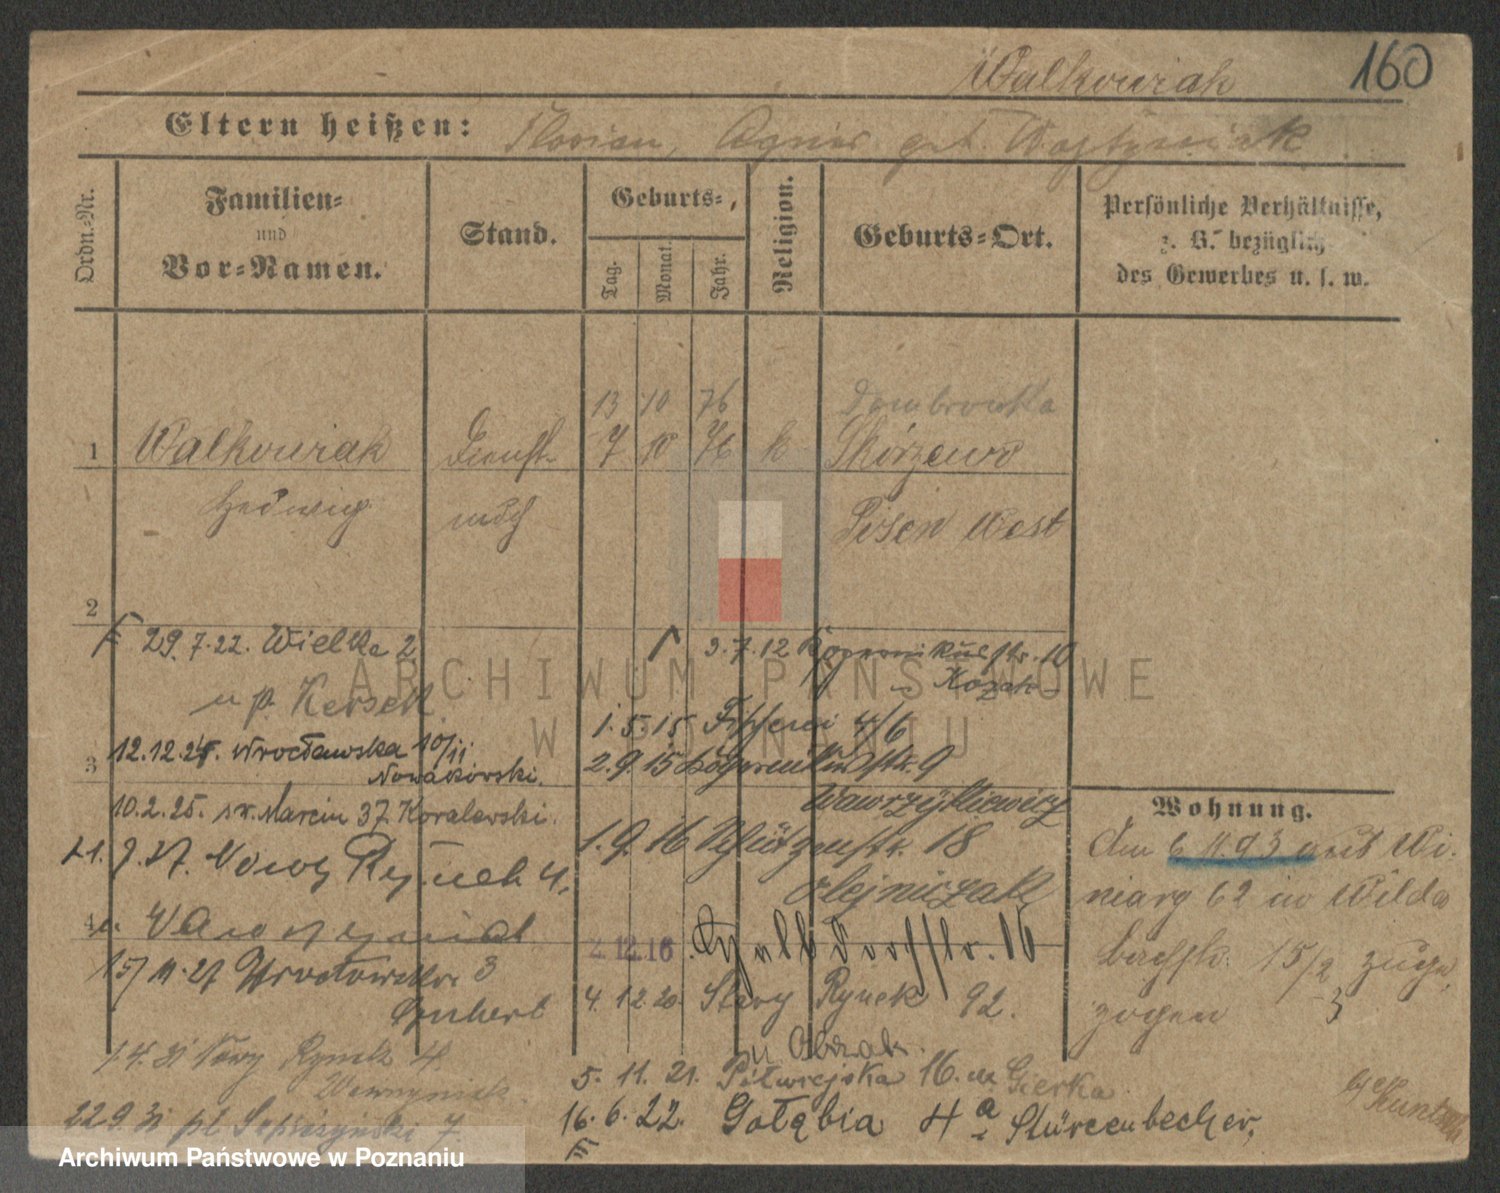 160
Walkowiak
Eltern heißen: Florian, Agnes geb.
Ordn.-Nr.
Familien- und Vor-Namen.
Stand.
Geburts-,
Tag. Monat. Jahr.
Religion.
Geburts-Ort.
Persönliche Verhältnisse,
z. B. bezüglich
des Gewerbes u. s. w.
13 10 76 Dombrowka
1 Walkowiak Dienst- 7 10 76 k Skórzewo
Hedwig mdch Posen West
2
29.7.22. Wielka 2
u p. Kersek
12.12.24. Wrocławska 10/II
Nowakowski.
3
10.2.25. św. Marcin 37 Koralewski.
1.9.27. Nowy Rynek 4,
4
15/11.27 Wrocławska 3
1.4.31 Nowy Rynek 4
Wawrzyniak.
22.9.31 pl. Sapieżyński 7
3.7.12 Kopernikusstr. 10
Kozak
1.5.15 Fischerei 4/6
2.9.15 Kopernikusstr. 9
Wawrzynkiewicz
1.9.16 Schützenstr. 18
Olejniczak
2.12.16 Halbdorfstr. 16
4.12.20. Stary Rynek 92.
5.11.21. Półwiejska 16. u. Gierka
16.6.22. Gołębia 4a
i Stürcenbecher,
Wohnung.
Am 6.11.93 aus Wi-
niary 62 in Wilda
Bachstr. 15/2 zuge-
zogen
3
ARCHIWUM PAŃSTWOWE
W POZNANIU
Archiwum Państwowe w Poznaniu